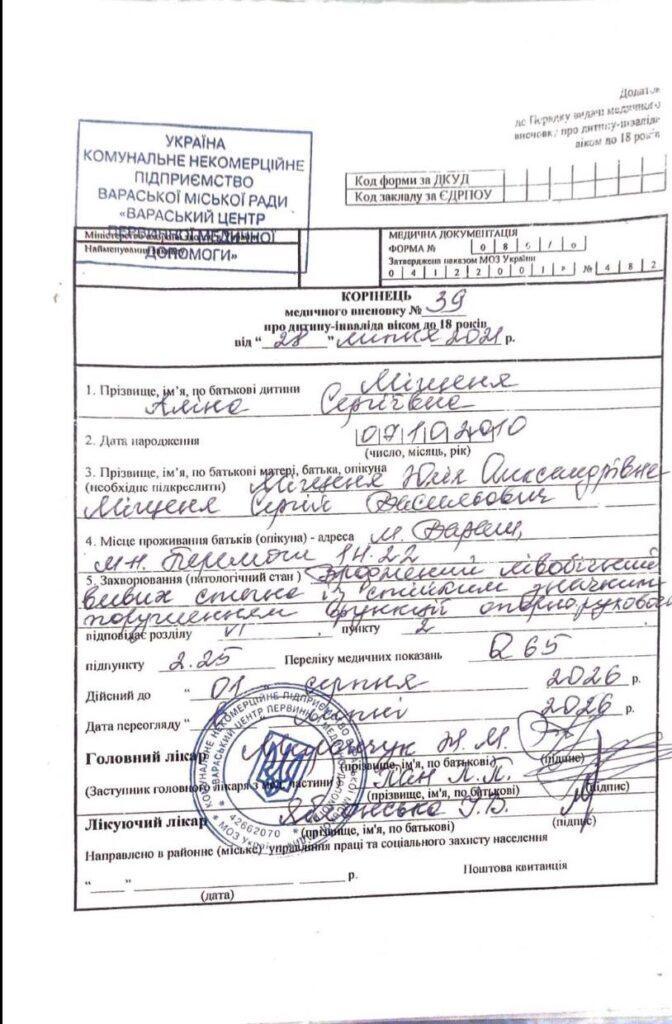 Додаток
до Порядку видачі медичного
висновку про дитину-інваліда
віком до 18 років
УКРАЇНА
КОМУНАЛЬНЕ НЕКОМЕРЦІЙНЕ
ПІДПРИЄМСТВО
ВАРАСЬКОЇ МІСЬКОЇ РАДИ
«ВАРАСЬКИЙ ЦЕНТР
ПЕРВИННОЇ МЕДИЧНОЇ
ДОПОМОГИ»
Код форми за ДКУД
Код закладу за ЄДРПОУ
Найменування
МЕДИЧНА ДОКУМЕНТАЦІЯ
ФОРМА №
Затверджена наказом МОЗ України
0 4 1 2 2 0 0 1 р № 4 8 2
КОРІНЕЦЬ
медичного висновку № 39
про дитину-інваліда віком до 18 років
від "28" липня 2021 р.
1. Прізвище, ім'я, по батькові дитини Міщеня
Аліна Сергіївна
2. Дата народження 07102010
(число, місяць, рік)
3. Прізвище, ім'я, по батькові матері, батька, опікуна
(необхідне підкреслити) Міщеня Юлія Олександрівна
Міщеня Сергій Васильович
4. Місце проживання батьків (опікуна) - адреса м. Вараш,
мн. Перемоги 1Н.22
5. Захворювання (патологічний стан) Вроджений лівобічний
вивих стегна із стійким значним
порушенням функції
відповідає розділу VI пункту 2
підпункту 2.25 Переліку медичних показань Q 65
Дійсний до "01" серпня 2026 р.
Дата переогляду 2026 р.
Головний лікар Ж. М.
(прізвище, ім'я, по батькові) (підпис)
(Заступник головного лікаря з мед. частини) Пан Л.П.
(прізвище, ім'я, по батькові) (підпис)
Лікуючий лікар
(прізвище, ім'я, по батькові) (підпис)
Направлено в районне (міське) управління праці та соціального захисту населення
"____" ____ р. Поштова квитанція
(дата)
КОМУНАЛЬНЕ НЕКОМЕРЦІЙНЕ ПІДПРИЄМСТВО
«ВАРАСЬКИЙ ЦЕНТР ПЕРВИННОЇ
* 42662070 *